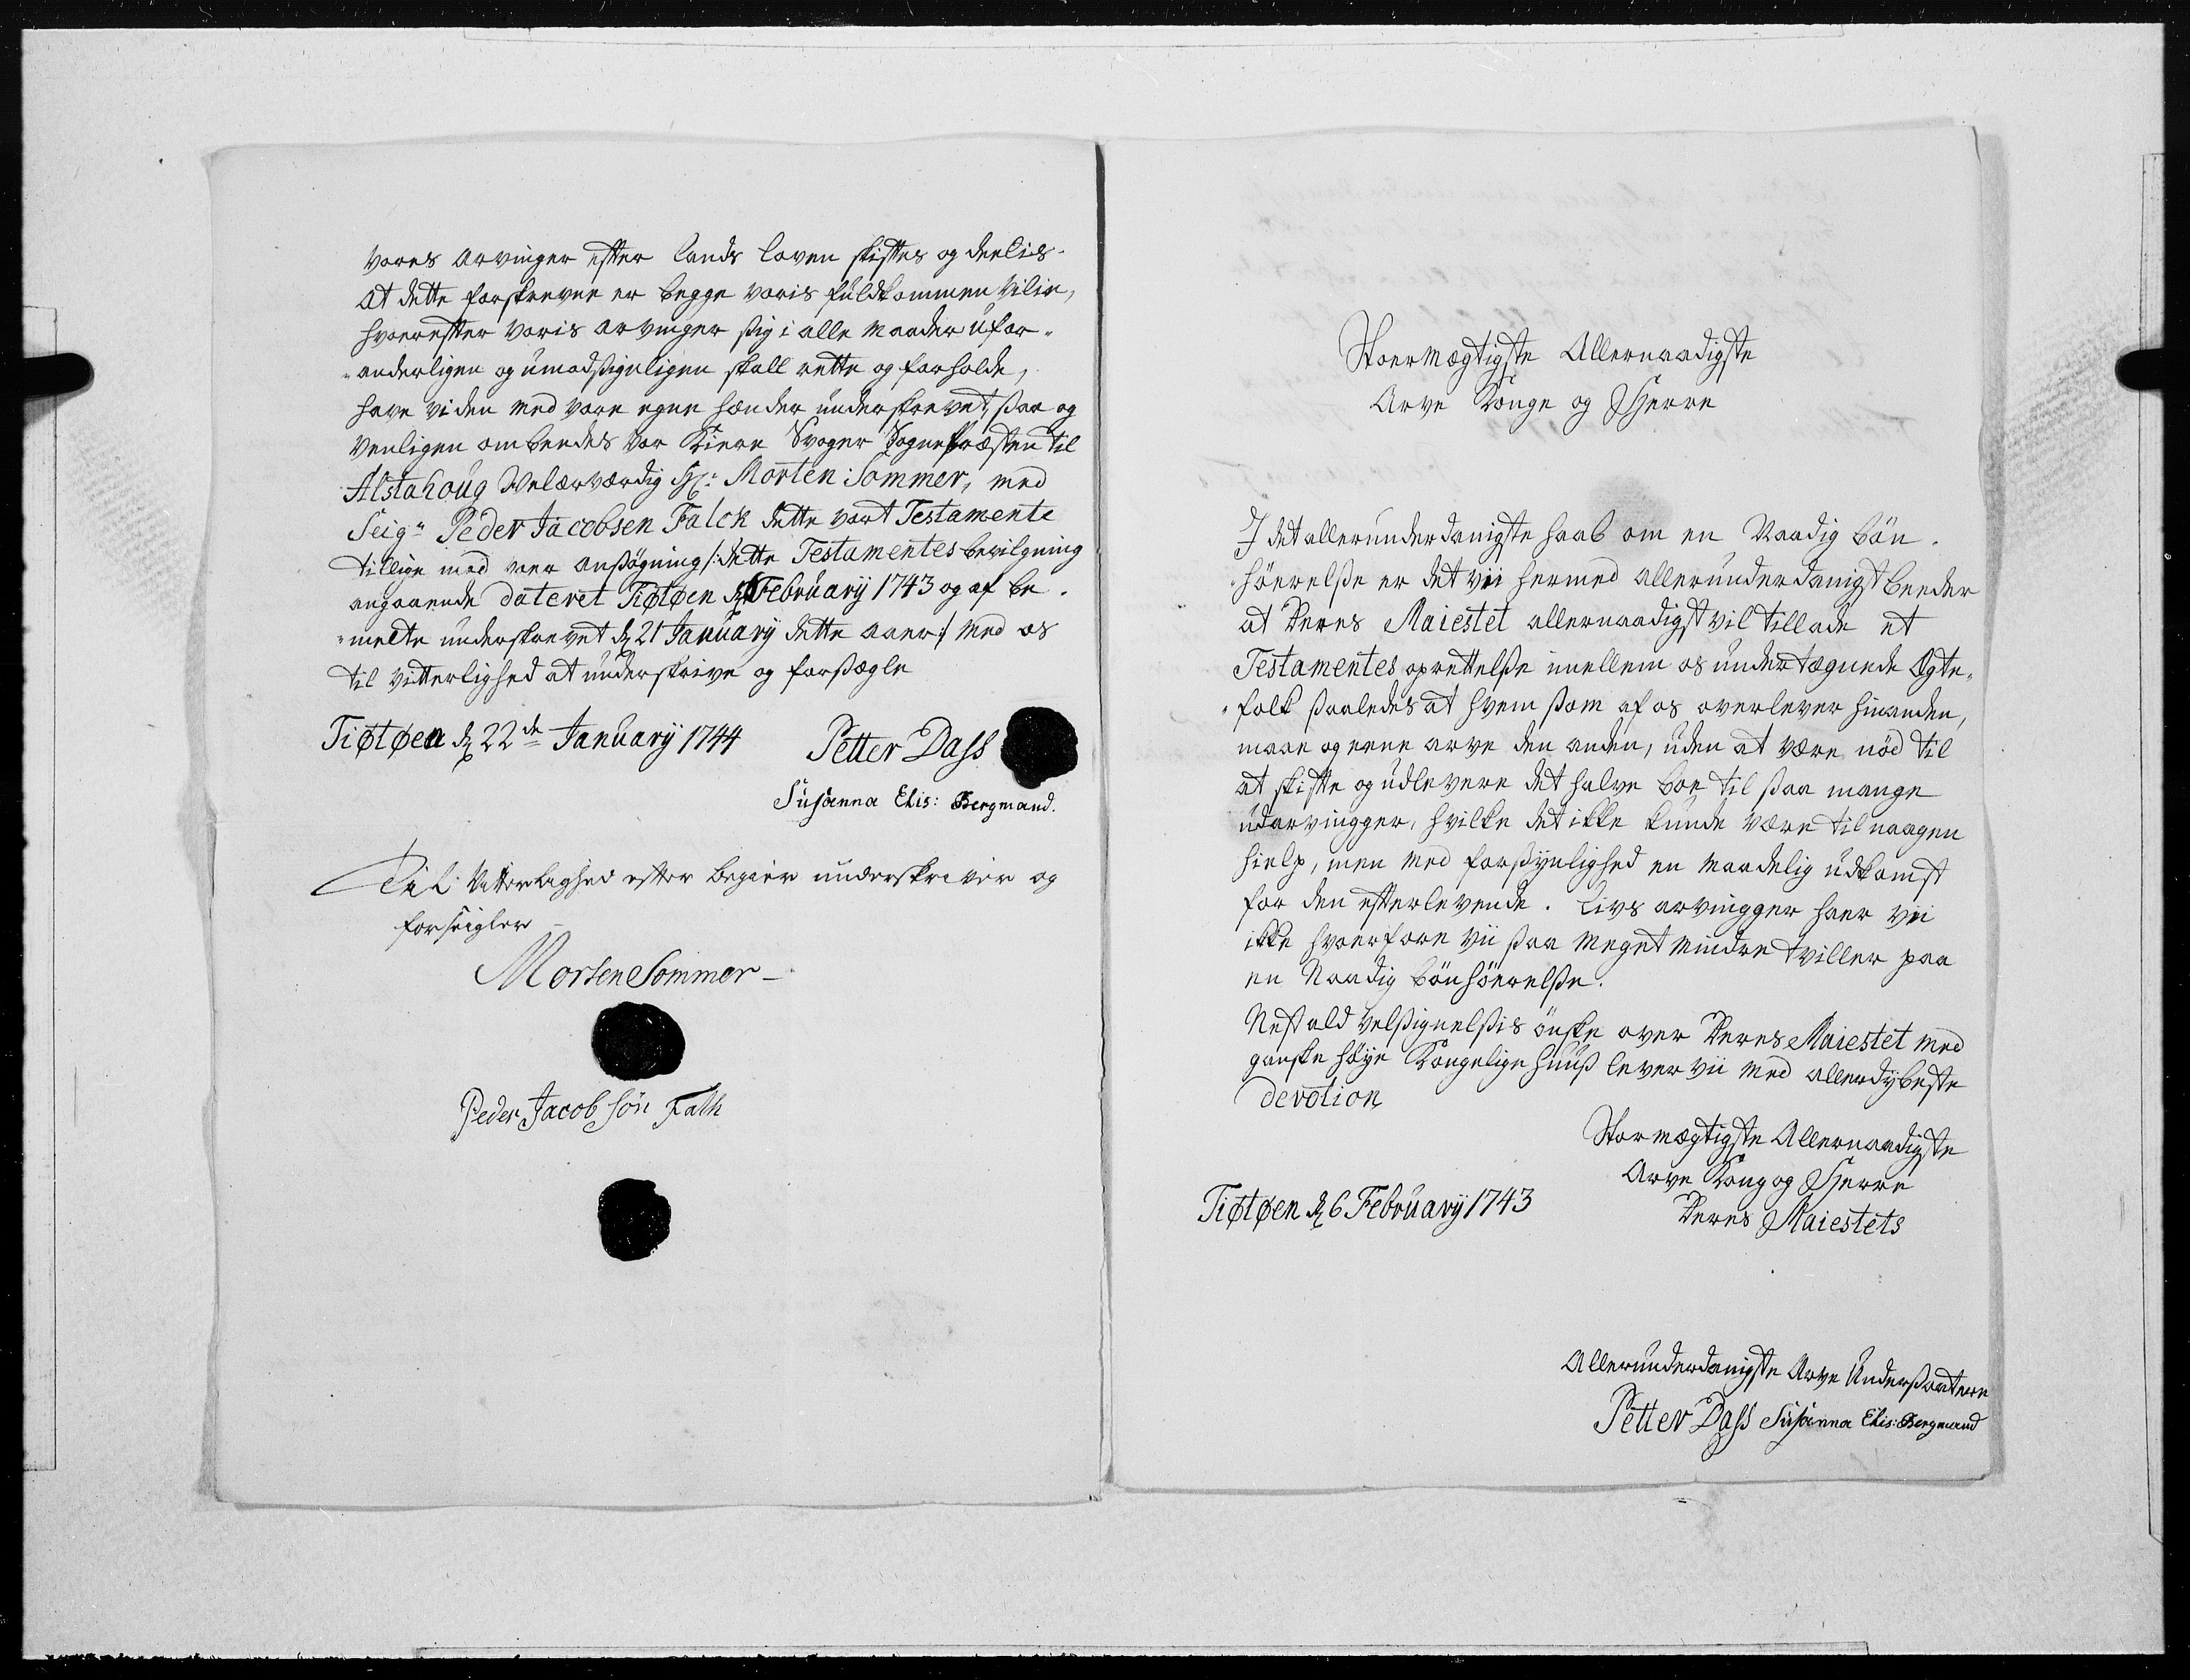 vores arvinger efter lands loven skiftes og deelis.
at dette forskrevne er begge voris fuldkommen vilie,
hvorefter voris arvinger sig i alle maader ufor-
anderligen og umodsigeligen skall rette og forholde,
have vi den med vore egne hænder underskrevet, saa og
venligen ombeedes vor Kiere Svoger Sognepræsten til
Alstahoug Welærværdig Hr: Morten Sommer, med
Seigr Peder Jacobsen Falck dette vort Testamente
tillige med voer ansøgning /: dette Testamentes bevilgning
angaaende dateret Tiøtøen d 6 February 1743 og af be-
melte underskrevet d 21 January dette aaer :/ med os
til vitterlighed at underskrive og forsægle
Tiøtøen d 22de January 1744 Petter Dass
Susanna Elis: Bergmand.
Til Vitterlighed efter begier underskriver og
forseigler
Morten Sommer
Peder Jacobsøn Falk
Stoermægtigste Allernaadigste
Arve Konge og Herre
I det allerunderdanigste haab om en Naadig bøn-
høerelse er det vii hermed allerunderdanigst beeder
at Deres Maiestet allernaadigst vil tillade et
Testamentes oprettelse imellem os undertægnede Egte-
folk saaledes at hvem som af os overlever hinanden,
maae og eene arve den anden, uden at være nød til
at skifte og udlevere det halve boe til saa mange
udarvingger, hvilke det ikke kunde være til naagen
hielp, men med forsynlighed en maadelig udkomst
for den efterlevende. Livs arvingger haer vii
ikke hvorfore vii saa meget mindre tviller paa
en Naadig bønhøerelse.
Nest ald velsignelsis ønske over Deres Maiestet med
ganske høye Kongelige huus lever vii med allerdybeste
devotion
Stormægtigste Allernaadigste
Arve Kong og Herre
Tiøtøen d 6 February 1743
Deres Maiestets
Allerunderdanigste Arve Undersaatere
Petter Dass Susanna Elis: Bergmand